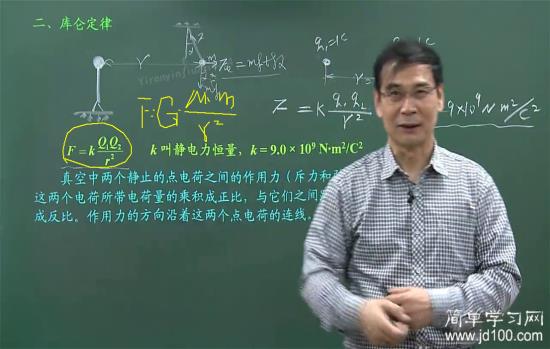 二、库仑定律
r
q₁=1C
1C
F=G m₁m/r²
k q₁q₂/r²
9×10⁹Nm²/C²
F = k Q₁Q₂/r²
k 叫静电力恒量，k = 9.0 × 10⁹ N·m²/C²
真空中两个静止的点电荷之间的作用力（斥力和
这两个电荷所带电荷量的乘积成正比，与它们之间
成反比。作用力的方向沿着这两个点电荷的连线。
简单学习网
www.jd100.com